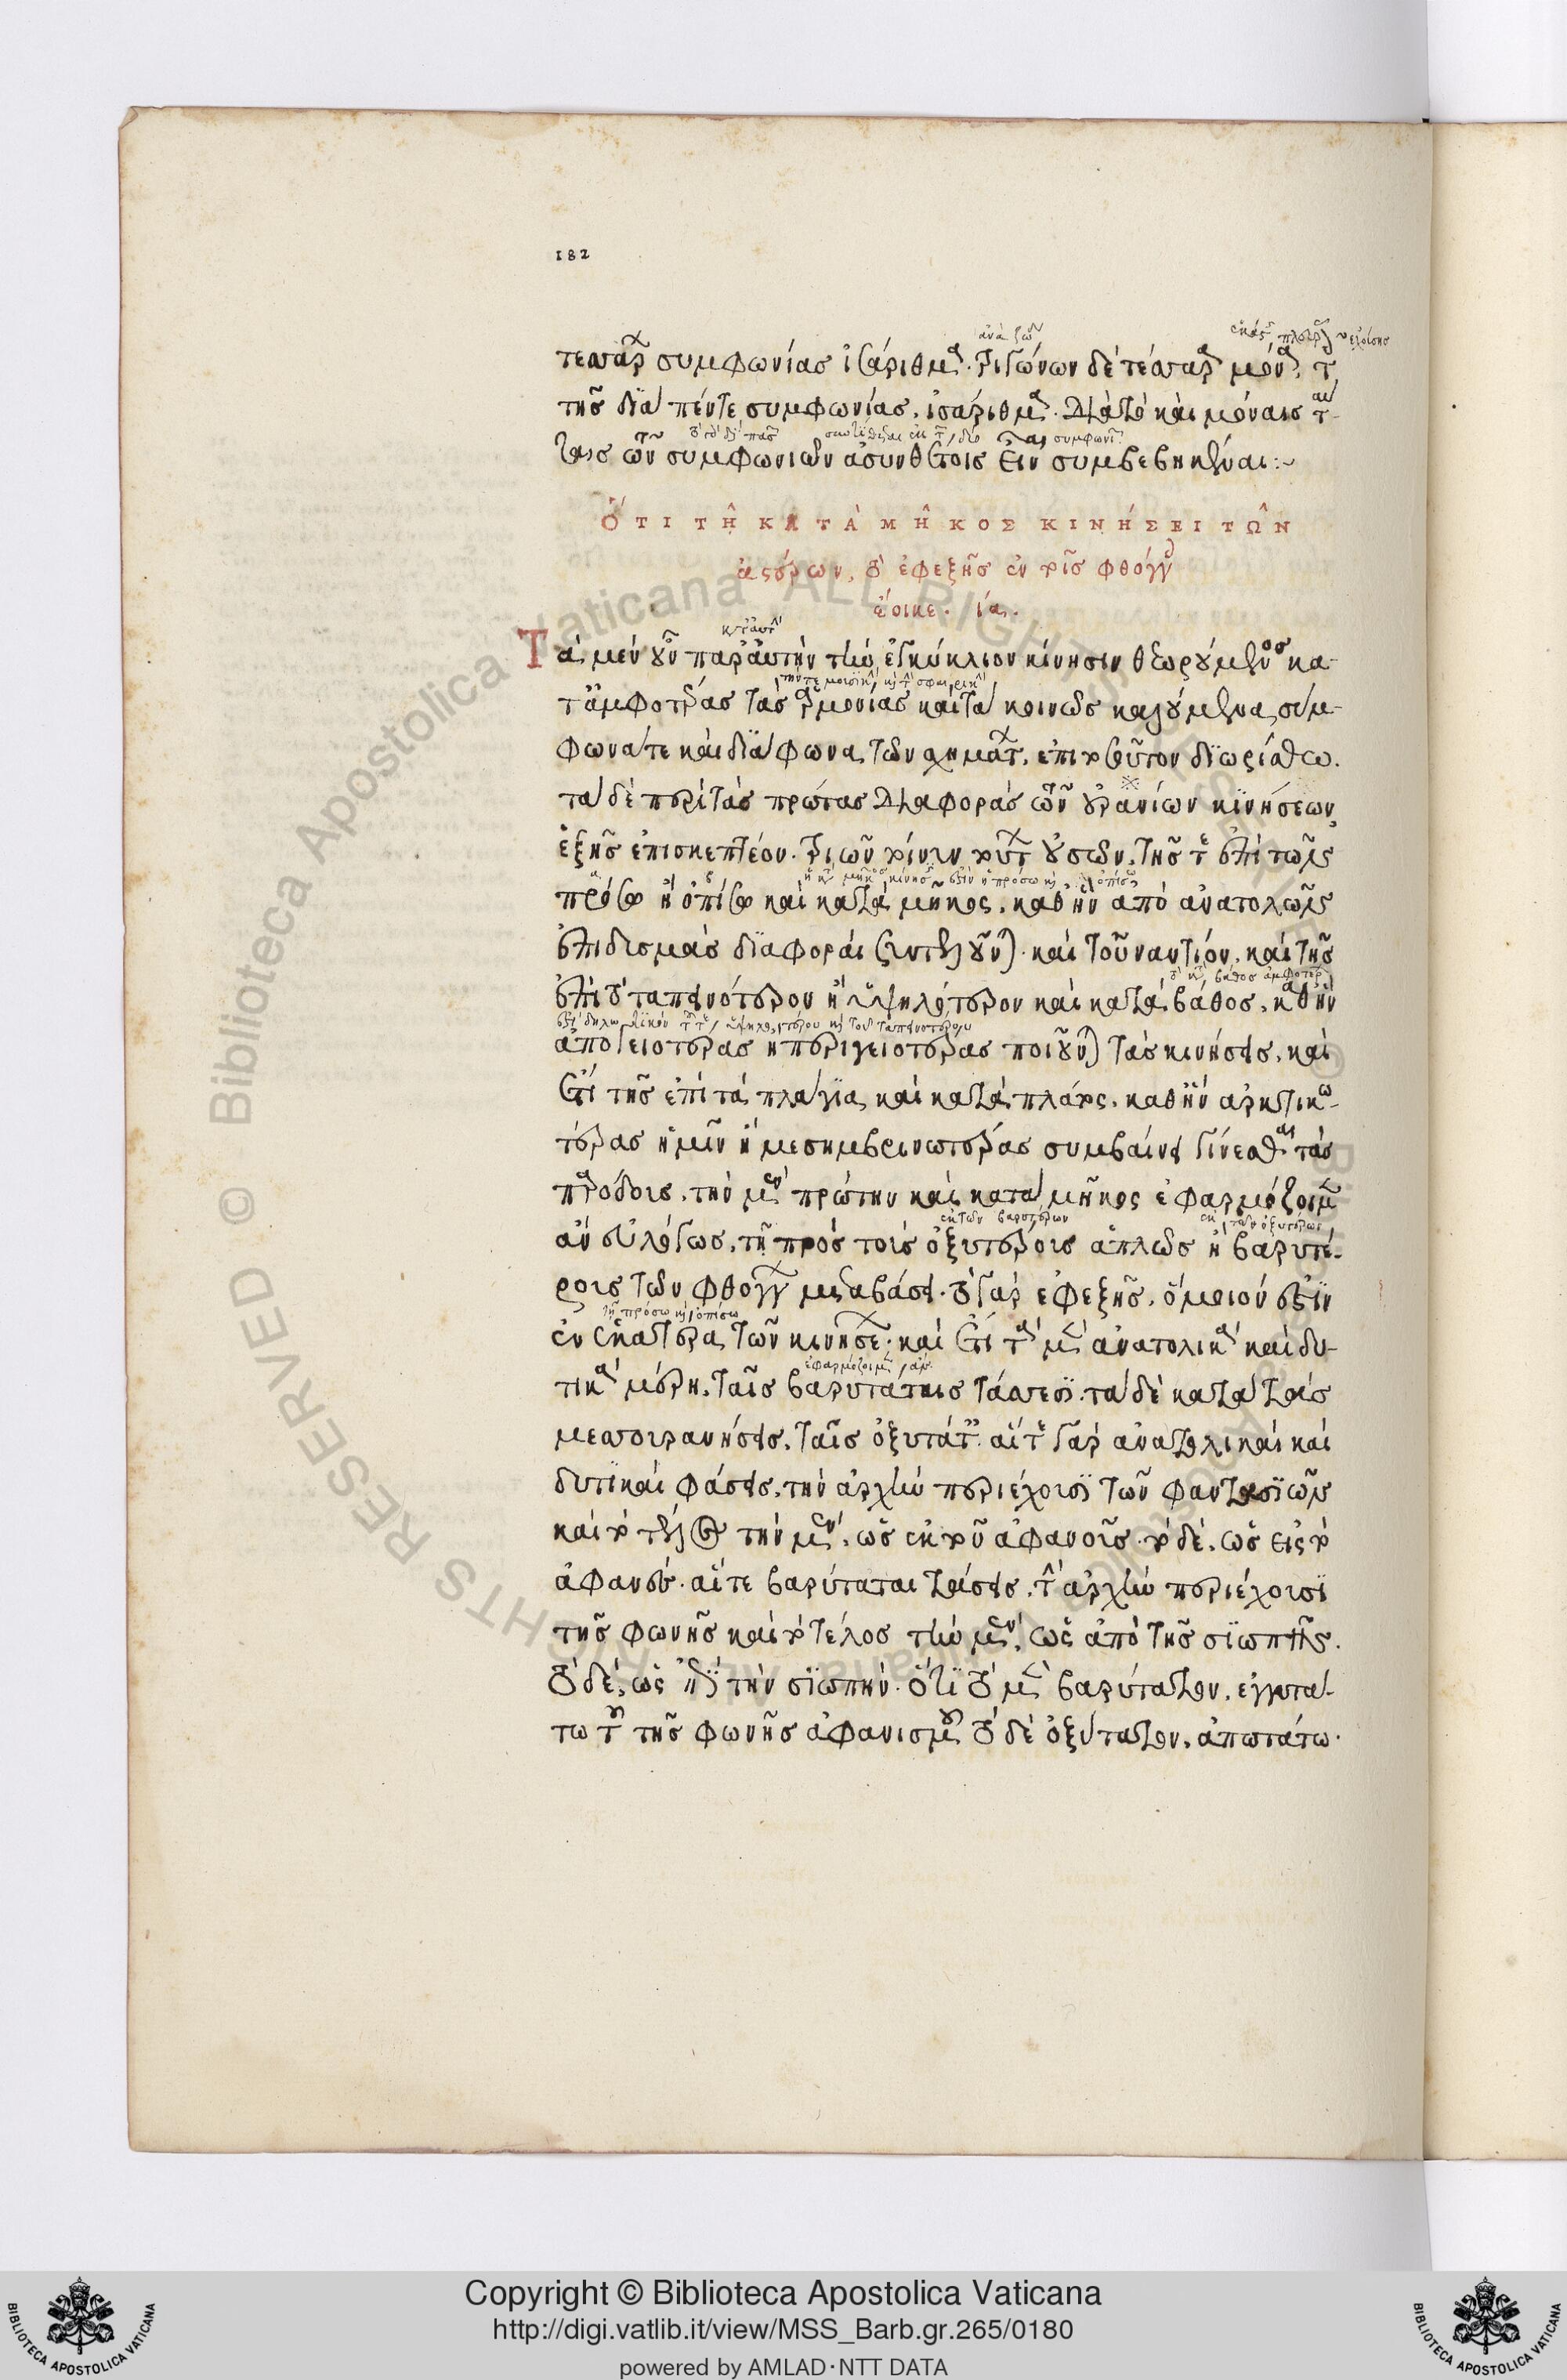 182
ἀνὰ ζώδ
τεσσάρ συμφωνίας ἰσάριθμα. τριγώνων δὲ τέσσαρα μόνα, τ
τῆς διὰ πέντε συμφωνίας, ἰσάριθμα. διὰ τὸ καὶ μόναις ταύ-
ταις τῶν συμφωνιῶν ἀσυνθέτοις εἶναι συμβεβηκέναι:~
Ὅτι τῇ κατὰ μῆκος κινήσει τῶν
ἀστέρων, τὸ ἐφεξῆς ἐν τοῖς φθόγγ
ἔοικε. ια.
κατ' αὐτὴν
Τὰ μὲν οὖν παρ' αὐτὴν τὴν ἐγκύκλιον κίνησιν θεωρούμενα κα-
τ' ἀμφοτέρας τὰς ἁρμονίας καὶ τὰ κοινῶς καλούμενα σύμ-
φωνά τε καὶ διάφωνα τῶν σχημάτ, ἐπὶ τοσοῦτον διωρίσθω.
τὰ δὲ περὶ τὰς πρώτας διαφορὰς τῶν οὐρανίων κινήσεων,
ἑξῆς ἐπισκεπτέον. τριῶν τοίνυν τούτ οὐσῶν, τῆς τε ἐπὶ τὸ
πρόσω ἢ ὀπίσω καὶ κατὰ μῆκος, καθ' ἣν ἀπὸ ἀνατολῶν
ἐπὶ δυσμὰς διαφοραὶ συντελοῦνται. καὶ τοὐναντίον, καὶ τῆς
ἐπὶ τὸ ταπεινότερον ἢ ὑψηλότερον καὶ κατὰ βάθος, καθ' ἣν
ἀπογειοτέρας ἢ περιγειοτέρας ποιοῦνται τὰς κινήσεις, καὶ
ἔτι τῆς ἐπὶ τὰ πλάγια καὶ κατὰ πλάτος, καθ' ἣν ἀρκτικω-
τέρας ἡμῖν ἢ μεσημβρινωτέρας συμβαίνει γίνεσθαι τὰς
παρόδους, τὴν μὲν πρώτην καὶ κατὰ μῆκος ἐφαρμόζοιμεν
ἐκ τῶν βαρυτέρων ἐκ τῶν ὀξυτέρων
ἂν εὐλόγως, τῇ πρὸς τοὺς ὀξυτέρους ἁπλῶς ἢ βαρυτέ-
ρους τῶν φθόγγ μεταβάσει. τὸ γὰρ ἐφεξῆς, ὅμοιόν ἐστιν
τῇ πρόσω καὶ ὀπίσω
ἐν ἑκατέρᾳ τῶν κινήσε. καὶ ἔτι τὰ μὲν ἀνατολικὰ καὶ δυ-
ἐφαρμόζοιμεν ἄν
τικὰ μέρη, ταῖς βαρυτάταις τάσεσι. τὰ δὲ κατὰ τὰς
μεσουρανήσεις, ταῖς ὀξυτάτ. αἵ τε γὰρ ἀνατολικαὶ καὶ
δυτικαὶ φάσεις, τὴν ἀρχὴν περιέχουσι τῶν φαντασιῶν
καὶ τὸ τέλος τὴν μὲν, ὡς ἐκ τοῦ ἀφανοῦς. τὸ δὲ, ὡς εἰς τὸ
ἀφανές. αἵ τε βαρύταται τάσεις, τὴν ἀρχὴν περιέχουσι
τῆς φωνῆς καὶ τὸ τέλος τὴν μὲν, ὡς ἀπὸ τῆς σιωπῆς.
τὸ δὲ, ὡς ἐπὶ τὴν σιωπήν. ὅτι τὸ μὲν βαρύτατον, ἐγγυτά-
τω τοῦ τῆς φωνῆς ἀφανισμοῦ τὸ δὲ ὀξύτατον, ἀπωτάτω.
Copyright © Biblioteca Apostolica Vaticana
http://digi.vatlib.it/view/MSS_Barb.gr.265/0180
powered by AMLAD·NTT DATA
BIBLIOTECA APOSTOLICA VATICANA
BIBLIOTECA APOSTOLICA VATICANA